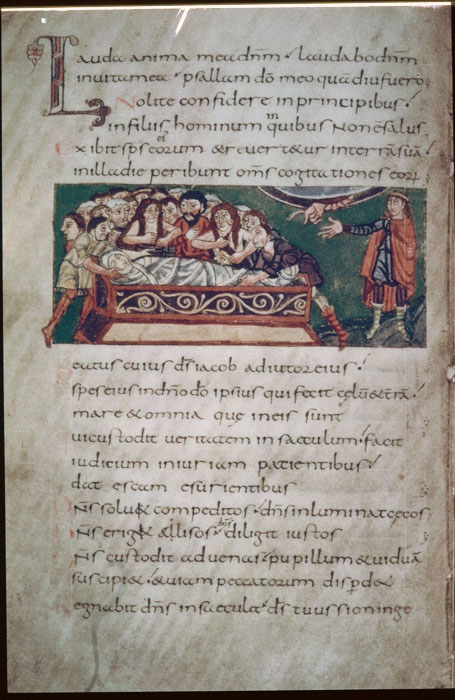 Lauda anima mea dnm · laudabo dnm
in vita mea · psallam do meo quam diu fuero
Nolite confidere in principibus ·
in filiis hominum in quibus non e salus
Exibit sps eorum & revert&ur in terra sua
in illa die peribunt oms cogitationes eorum
eatus cuius ds iacob adiutor eius
spes eius in dno do ipsius qui fecit celu & tra
mare & omnia que in eis sunt
ui custodit veritatem in saeculum · facit
iudicium iniuriam patientibus
dat escam esurientibus
dns solu& compeditos · dns inluminat cecos
dns erig& allisos dns diligit iustos
dns custodit advenas · pupillum & vidua
suscipi& · & viam peccatorum disperd&
egnabit dns in saecula ds tuus sion in ge